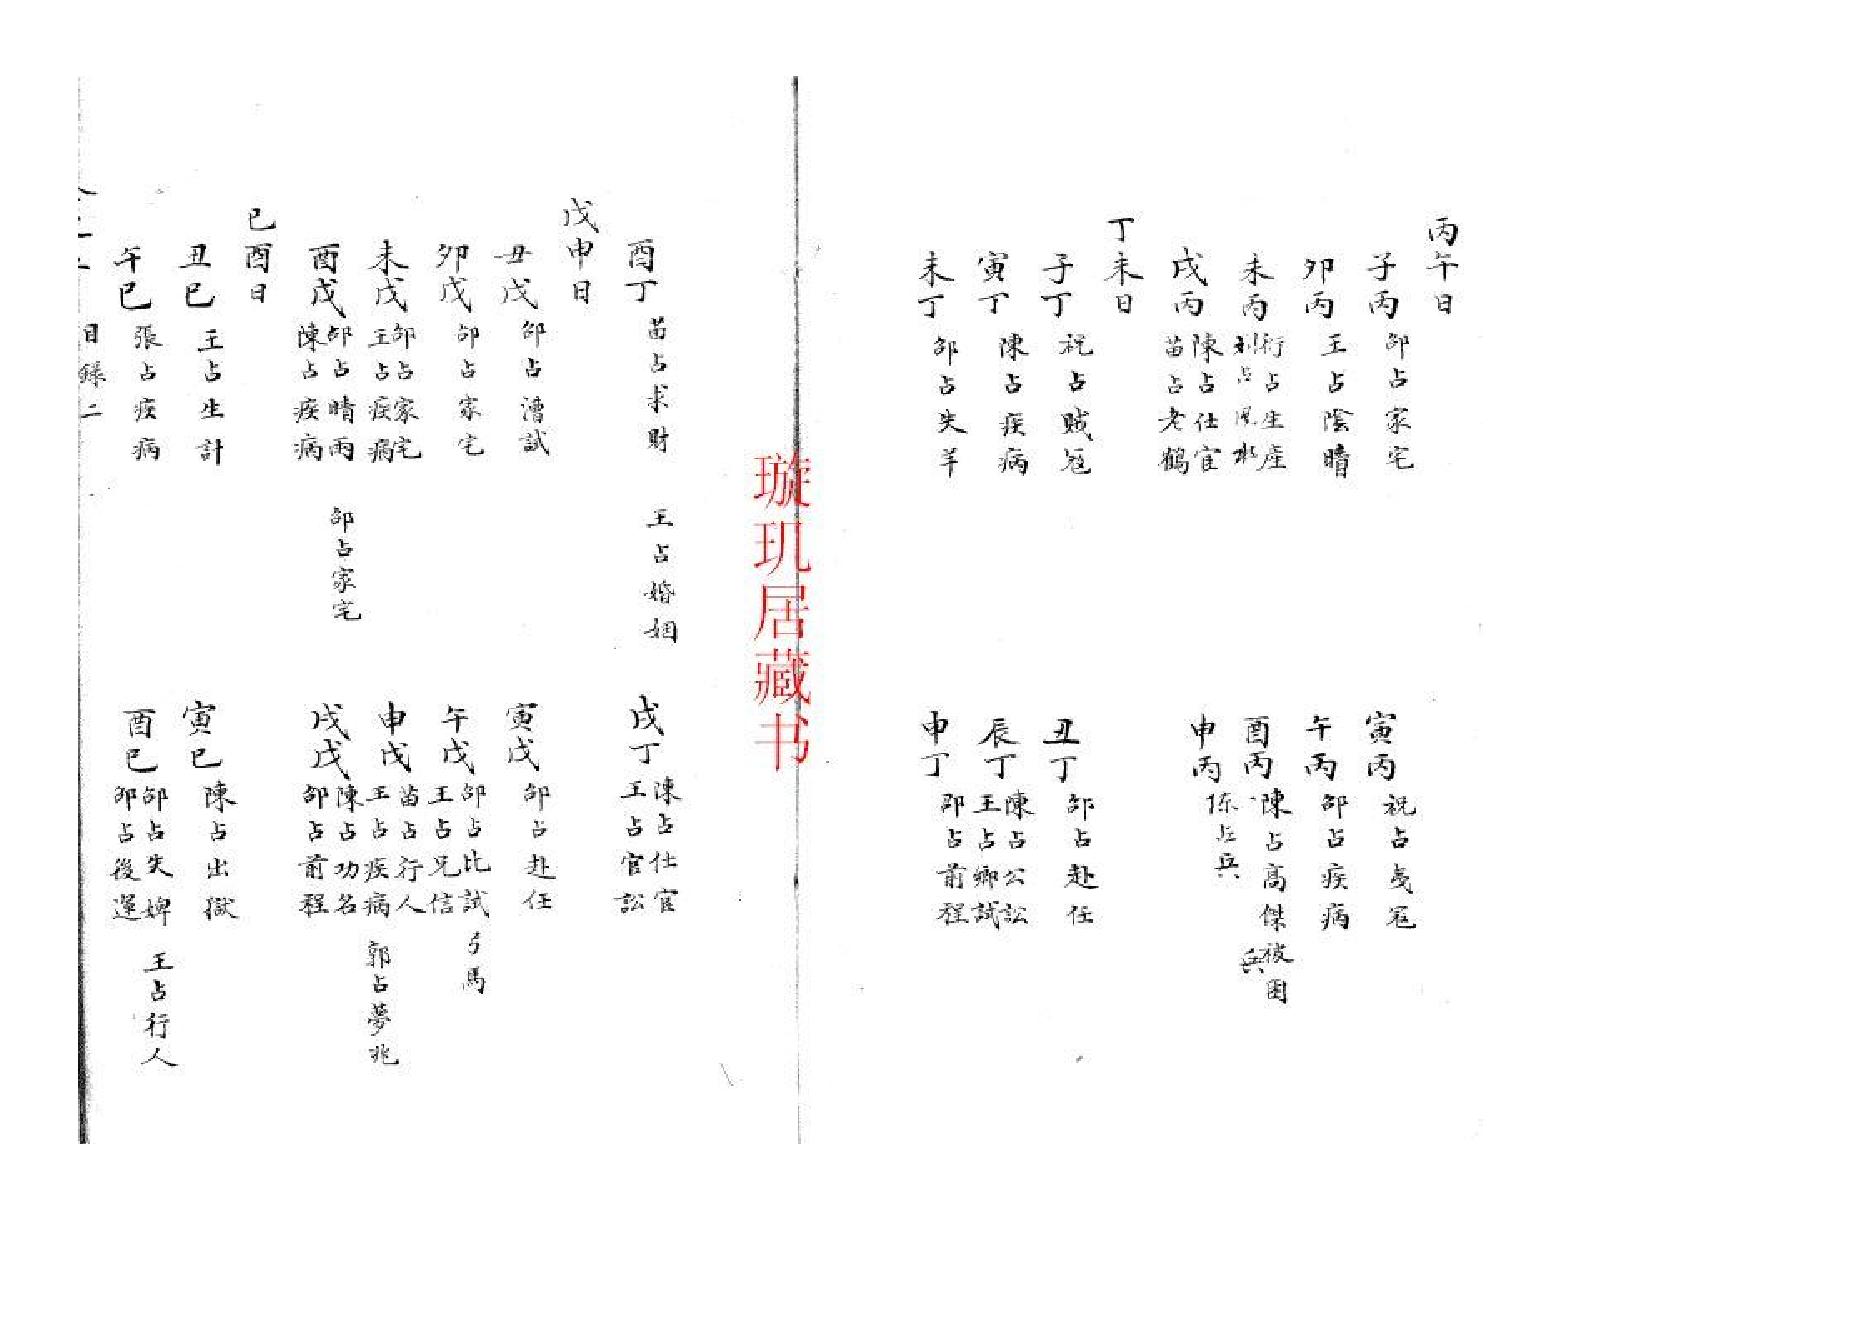 丙午日
子丙 邵占家宅
寅丙 祝占戔冦
卯丙 王占陰晴
午丙 邵占疾病
未丙 衍占生産
刘占風水
酉丙 陳占高傑被困
兵
戌丙 陳占仕宦
苗占老鶴
申丙 占兵
丁未日
子丁 祝占賊冦
丑丁 邵占赴任
寅丁 陳占疾病
辰丁 陳占公訟
王占鄉試
未丁 邵占失羊
申丁 邵占前程
酉丁 苗占求財 王占婚姻
戌丁 陳占仕宦
王占官訟
戊申日
丑戊 邵占漕試
寅戊 邵占赴任
卯戊 邵占家宅
午戊 邵占比試弓馬
王占兄信
未戊 邵占家宅
王占疾病
申戊 苗占行人
王占疾病 郭占夢兆
酉戊 邵占晴雨 邵占家宅
陳占疾病
戌戊 陳占功名
邵占前程
己酉日
丑巳 王占生計
寅巳 陳占出獄
午巳 張占疾病
酉巳 邵占失婢 王占行人
邵占後運
目錄二
璇玑居藏书